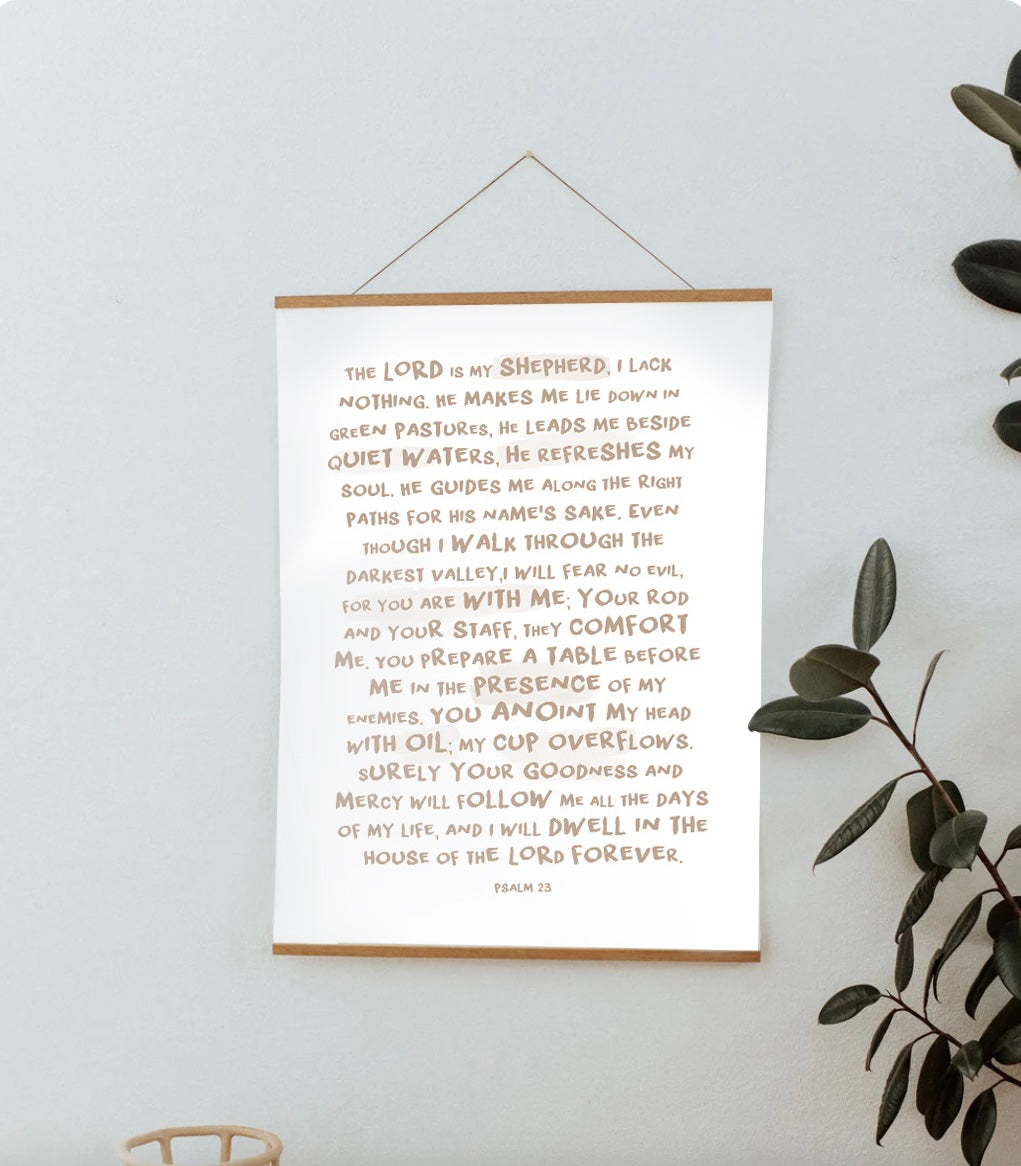 THE LORD IS MY SHEPHERD, I LACK
NOTHING. HE MAKES ME LIE DOWN IN
GREEN PASTURES, HE LEADS ME BESIDE
QUIET WATERS, HE REFRESHES MY
SOUL. HE GUIDES ME ALONG THE RIGHT
PATHS FOR HIS NAME'S SAKE. EVEN
THOUGH I WALK THROUGH THE
DARKEST VALLEY,I WILL FEAR NO EVIL,
FOR YOU ARE WITH ME; YOUR ROD
AND YOUR STAFF, THEY COMFORT
ME. YOU PREPARE A TABLE BEFORE
ME IN THE PRESENCE OF MY
ENEMIES. YOU ANOINT MY HEAD
WITH OIL; MY CUP OVERFLOWS.
SURELY YOUR GOODNESS AND
MERCY WILL FOLLOW ME ALL THE DAYS
OF MY LIFE, AND I WILL DWELL IN THE
HOUSE OF THE LORD FOREVER.
PSALM 23